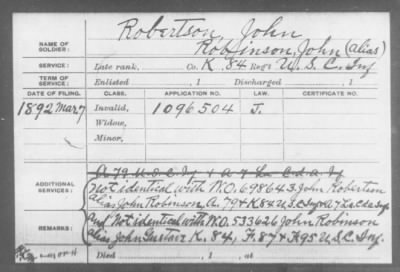 Robertson, John
NAME OF SOLDIER: Robinson, John (alias)
SERVICE: Late rank, Co. K. 84 Reg't U.S.C. Inf
TERM OF SERVICE: Enlisted , 1 Discharged , 1
DATE OF FILING. CLASS. APPLICATION NO. LAW. CERTIFICATE NO.
1892 Mar 7 Invalid, 1096504 J.
Widow,
Minor,
A. 79 U.S.C. If + A 7 La C. d. A. If
ADDITIONAL SERVICES: Not identical with W.O. 698643. John Robertson
alias John Robinson, A. 79 + K 84 U.S.C. Inf + A 7 La C de Inf
REMARKS: And Not identical with W.O. 533626 John Robinson
alias John Gustave K. 84, F. 87 + F. 95 U.S.C. Inf.
Died , 1 , at